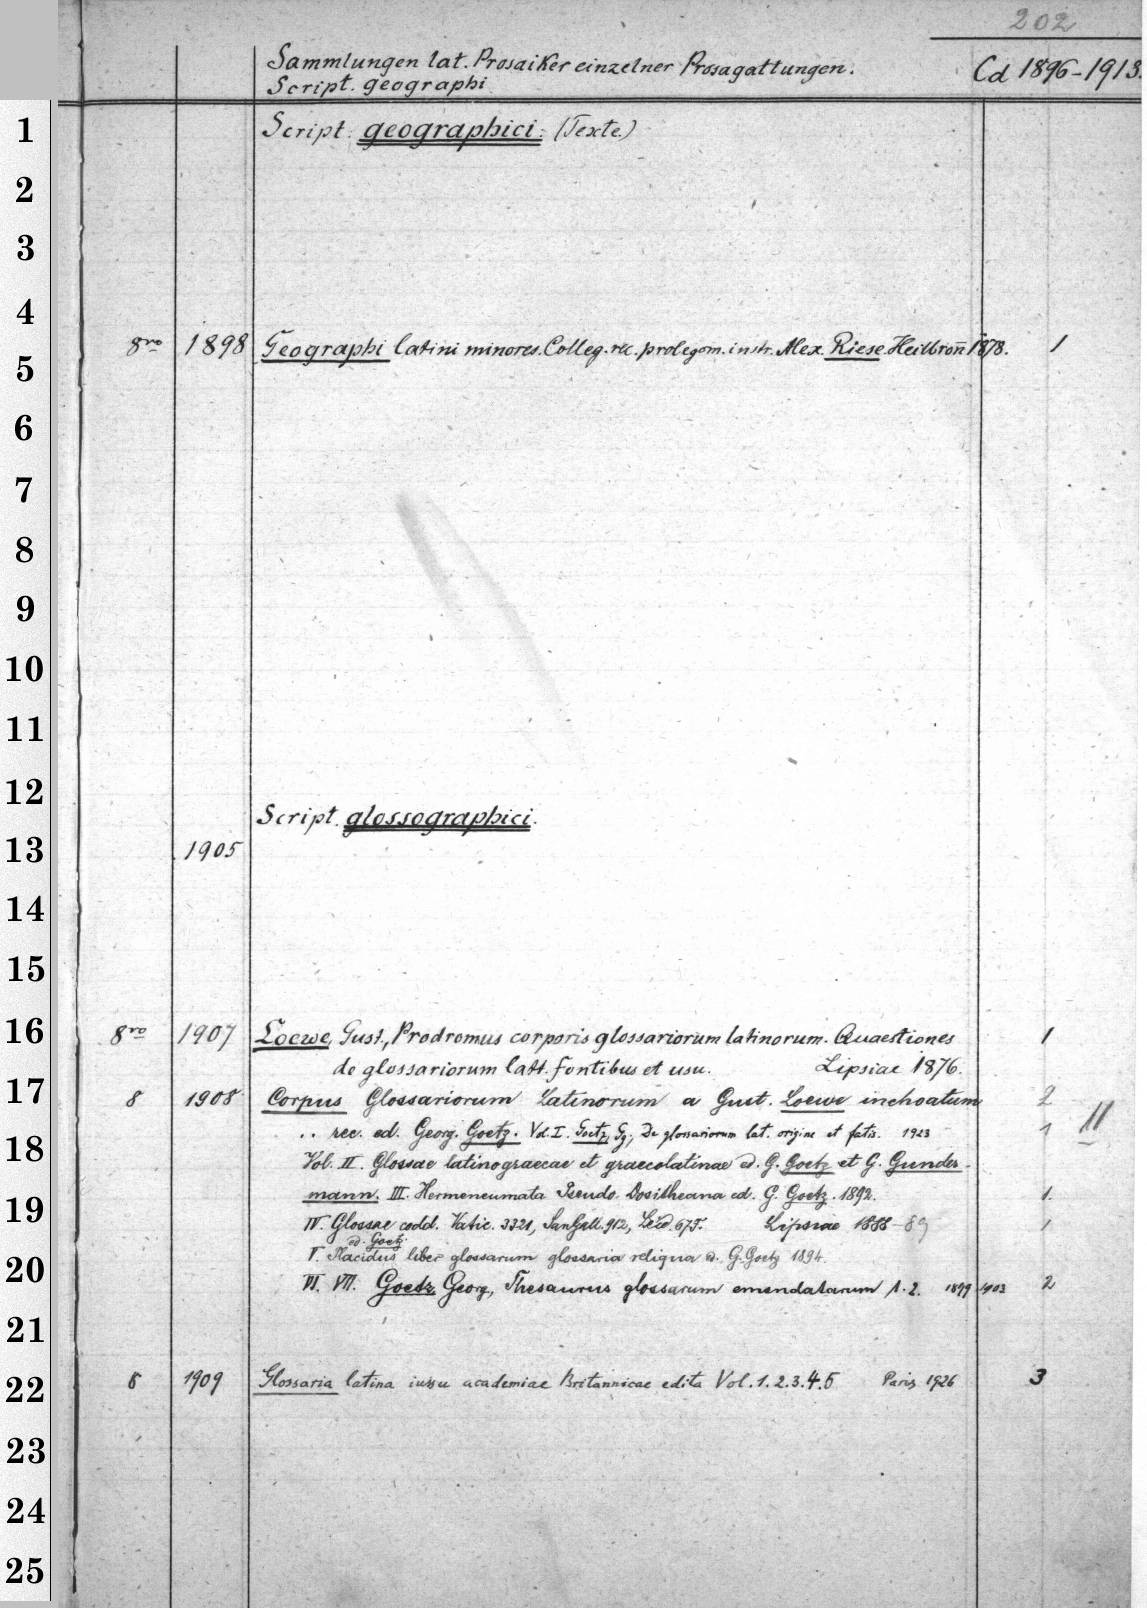 202
Sammlungen lat. Prosaiker einzelner Prosagattungen. Cd 1896-1913.
Script. geographi
1 Script. geographici. (Texte.)
2
3
4
8ro 1898 Geographi latini minores. Colleg. rec. prolegom. instr. Alex. Riese. Heilbron̄ 1878. 1
5
6
7
8
9
10
11
12
Script. glossographici.
13 1905
14
15
16 8ro 1907 Loewe, Gust., Prodromus corporis glossariorum latinorum. Quaestiones 1
de glossariorum latt. fontibus et usu. Lipsiae 1876.
17 8 1908 Corpus Glossariorum Latinorum a Gust. Loewe inchoatum 2
rec. ed. Georg. Goetz. Vol. I. Goetz, Gg., De glossariorum lat. origine et fatis. 1923 1 11
18 Vol. II. Glossae latinograecae et graecolatinae ed. G. Goetz et G. Gunder-
19 mann. III. Hermeneumata Pseudo-Dositheana ed. G. Goetz. 1892. 1.
IV. Glossae codd. Vatic. 3321, SanGall. 912, Leid. 67F. Lipsiae 1888-89 1
ed. Goetz.
V. Placidus liber glossarum glossaria reliqua ed. G. Goetz 1894.
20 VI. VII. Goetz, Georg, Thesaurus glossarum emendatarum 1. 2. 1899-1903 2
21
22 8 1909 Glossaria latina iussu academiae Britannicae edita Vol. 1. 2. 3. 4. 5 Paris 1926 3
23
24
25